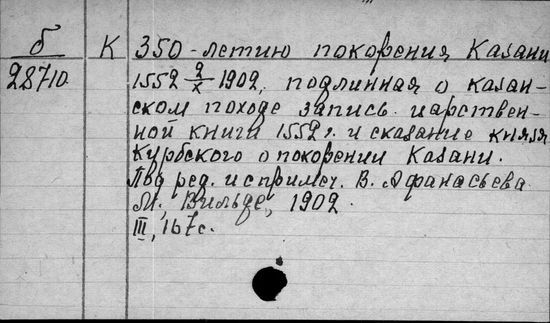 б К 350-летию покорения Казани
28710 1552 2/X 1902, подлинная о казан-
ском походе запись царствен-
ной книги 1552 г. и сказание князя
Курбского о покорении Казани.
Под ред. и с примеч. В. Афанасьева
М., Вильде, 1902.
III, 167 с.